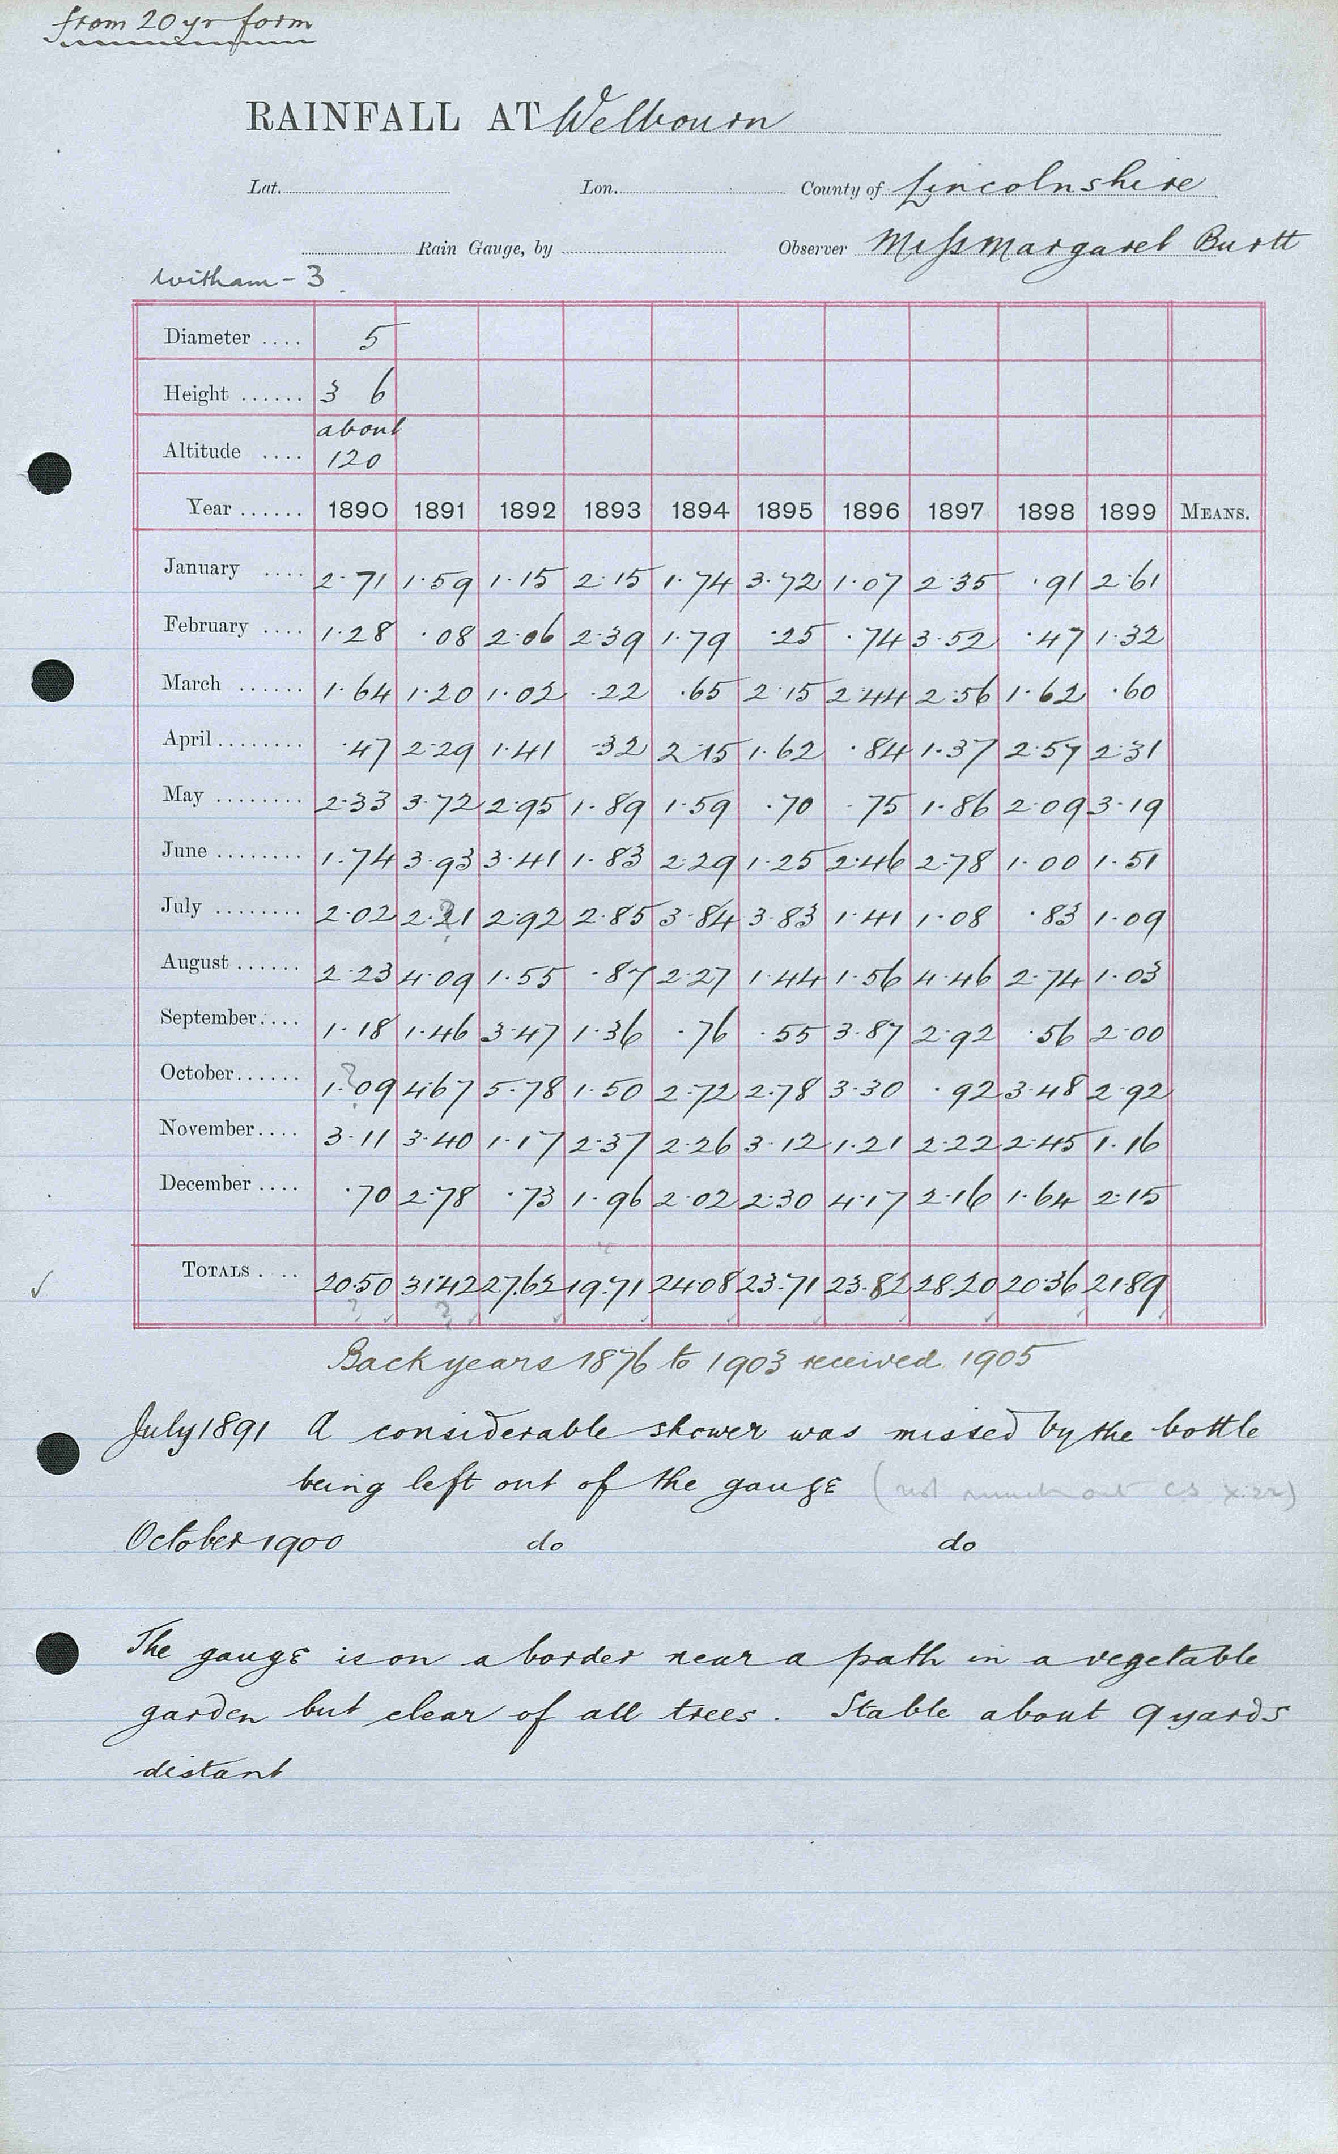 from 20 yr form
RAINFALL AT Welbourn
Lat. Lon. County of Lincolnshire
Rain Gauge, by Observer Miss Margaret Burtt
Witham - 3
Diameter .... 5
Height ...... 3 6
about
Altitude .... 120
Year ...... 1890 1891 1892 1893 1894 1895 1896 1897 1898 1899 MEANS.
January .... 2.71 1.59 1.15 2.15 1.74 3.72 1.07 2.35 .91 2.61
February .... 1.28 .08 2.06 2.39 1.79 .25 .74 3.52 .47 1.32
March ...... 1.64 1.20 1.02 .22 .65 2.15 2.44 2.56 1.62 .60
April ........ .47 2.29 1.41 .32 2.15 1.62 .84 1.37 2.57 2.31
May ........ 2.33 3.72 2.95 1.89 1.59 .70 .75 1.86 2.09 3.19
June ........ 1.74 3.93 3.41 1.83 2.29 1.25 2.46 2.78 1.00 1.51
July ........ 2.02 2.21 ? 2.92 2.85 3.84 3.83 1.41 1.08 .83 1.09
August ...... 2.23 4.09 1.55 .87 2.27 1.44 1.56 4.46 2.74 1.03
September.... 1.18 1.46 3.47 1.36 .76 .55 3.87 2.92 .56 2.00
October...... 1.09 ? 4.67 5.78 1.50 2.72 2.78 3.30 .92 3.48 2.92
November.... 3.11 3.40 1.17 2.37 2.26 3.12 1.21 2.22 2.45 1.16
December .... .70 2.78 .73 1.96 2.02 2.30 4.17 2.16 1.64 2.15
TOTALS .... 20.50 31.42 27.62 19.71 24.08 23.71 23.82 28.20 20.36 21.89
? ?
Back years 1876 to 1903 received 1905
July 1891 A considerable shower was missed by the bottle
being left out of the gauge (not much out
October 1900 do do
The gauge is on a border near a path in a vegetable
garden but clear of all trees. Stable about 9 yards
distant